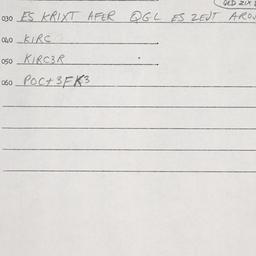 OLD ZIX
030 ES KRIXT AFER QGL ES ZEUT AROU
040 KIRC
050 KIRC3R
060 POCt3FK3